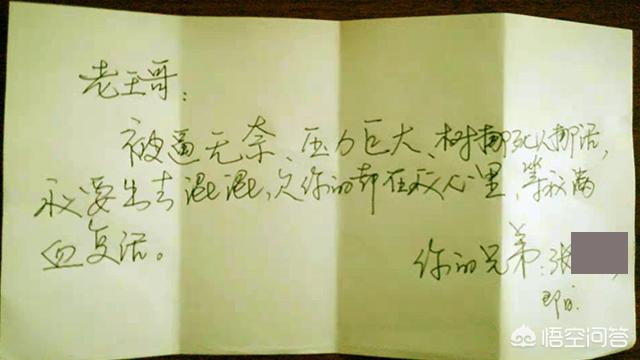 老王哥:
被逼无奈、压力巨大、树挪死人挪活,
我要出去混混,欠你的都在我心里,等我满
血复活。
你的兄弟:张
即日
悟空问答